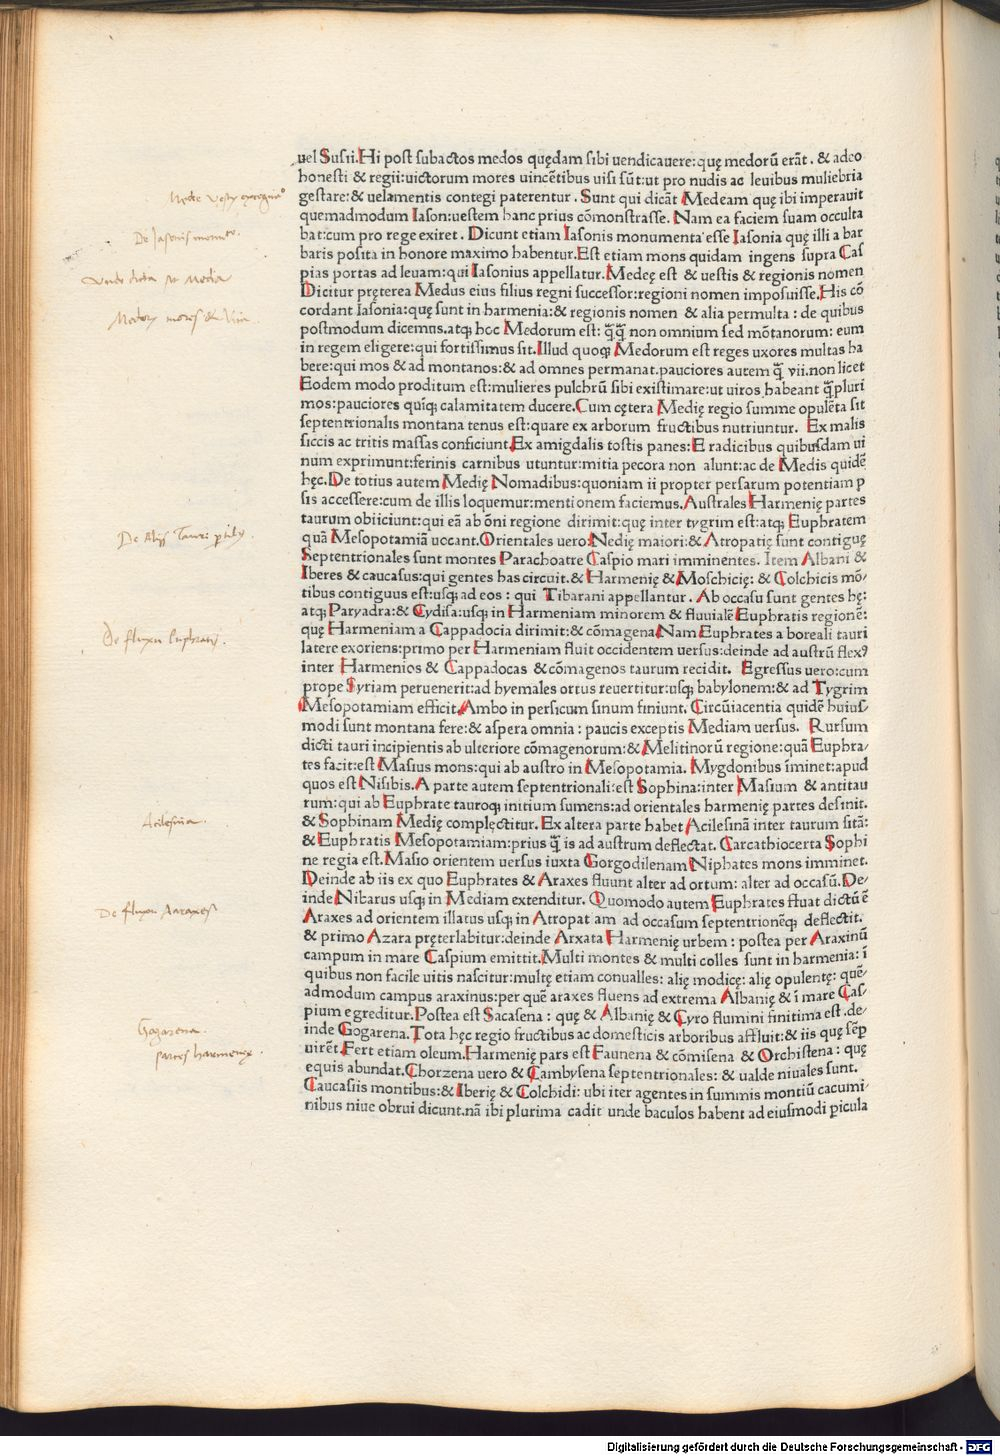 uel Susii.Hi post subactos medos quędam sibi uendicauere:quę medorū erāt. & adeo
honesti & regii:uictorum mores uincētibus uisi sūt:ut pro nudis ac leuibus muliebria
gestare:& uelamentis contegi paterentur. Sunt qui dicāt Medeam quę ibi imperauit
quemadmodum Iason:uestem hanc prius cōmonstrasse. Nam ea faciem suam occulta
bat:cum pro rege exiret. Dicunt etiam Iasonis monumenta esse Iasonia quę illi a bar
baris posita in honore maximo habentur.Est etiam mons quidam ingens supra Cas
pias portas ad leuam:qui Iasonius appellatur.Medeę est & uestis & regionis nomen
Dicitur pręterea Medus eius filius regni successor:regioni nomen imposuisse.His cō
cordant Iasonia:quę sunt in harmenia:& regionis nomen & alia permulta : de quibus
postmodum dicemus.atqꝫ hoc Medorum est: q̄q̄ non omnium sed mōtanorum: eum
in regem eligere:qui fortissimus sit.Illud quoqꝫ Medorum est reges uxores multas ha
bere:qui mos & ad montanos:& ad omnes permanat.pauciores autem q̄ vii.non licet
Eodem modo proditum est:mulieres pulchrū sibi existimare:ut uiros habeant q̄pluri
mos:pauciores quīqꝫ calamitatem ducere.Cum cętera Medię regio summe opulēta sit
septentrionalis montana tenus est:quare ex arborum fructibus nutriuntur. Ex malis
siccis ac tritis massas conficiunt.Ex amigdalis tostis panes:E radicibus quibusdam ui
num exprimunt:ferinis carnibus utuntur:mitia pecora non alunt:ac de Medis quidē
hęc.De totius autem Medię Nomadibus:quoniam ii propter persarum potentiam ꝑ
sis accessere:cum de illis loquemur:mentionem faciemus.Australes Harmenię partes
taurum obiiciunt:qui eā ab ōni regione dirimit:quę inter tygrim est:atqꝫ Euphratem
quā Mesopotamiā uocant.Orientales uero:Nedię maiori:& Atropatię sunt contiguę
Septentrionales sunt montes Parachoatre Caspio mari imminentes. Item Albani &
Iberes & caucasus:qui gentes has circuit.& Harmenię & Moschicię: & Colchicis mō-
tibus contiguus est:usqꝫ ad eos : qui Tibarani appellantur. Ab occasu sunt gentes hę:
atqꝫ Paryadra:& Cydisa:usqꝫ in Harmeniam minorem & fluuialē Euphratis regionē:
quę Harmeniam a Cappadocia dirimit:& cōmagena.Nam Euphrates a boreali tauri
latere exoriens:primo per Harmeniam fluit occidentem uersus:deinde ad austrū flexꝰ
inter Harmenios & Cappadocas & cōmagenos taurum recidit. Egressus uero:cum
prope Syriam peruenerit:ad hyemales ortus reuertitur:usqꝫ babylonem:& ad Tygrim
Mesopotamiam efficit.Ambo in persicum sinum finiunt. Circūiacentia quidē huius-
modi sunt montana fere:& aspera omnia : paucis exceptis Mediam uersus. Rursum
dicti tauri incipientis ab ulteriore cōmagenorum:& Melitinorū regione:quā Euphra-
tes facit:est Masius mons:qui ab austro in Mesopotamia. Mygdonibus īminet:apud
quos est Nisibis.A parte autem septentrionali:est Sophina:inter Masium & antitau
rum:qui ab Euphrate tauroqꝫ initium sumens:ad orientales harmenię partes desinit.
& Sophinam Medię complęctitur. Ex altera parte habet Acilesinā inter taurum sitā:
& Euphratis Mesopotamiam:prius q̄ is ad austrum deflectat. Carcathiocerta Sophi
ne regia est.Masio orientem uersus iuxta Gorgodilenam Niphates mons imminet.
Deinde ab iis ex quo Euphrates & Araxes fluunt alter ad ortum: alter ad occasū.De-
inde Nibarus usqꝫ in Mediam extenditur. Quomodo autem Euphrates fluat dictū ē
Araxes ad orientem illatus usqꝫ in Atropat am ad occasum septentrionēqꝫ deflectit.
& primo Azara pręterlabitur:deinde Arxata Harmenię urbem : postea per Araxinū
campum in mare Caspium emittit.Multi montes & multi colles sunt in harmenia: ī
quibus non facile uitis nascitur:multę etiam conualles: alię modicę: alię opulentę: quē-
admodum campus araxinus:per quē araxes fluens ad extrema Albanię & ī mare Cas-
pium egreditur.Postea est Sacasena : quę & Albanię & Cyro flumini finitima est .de-
inde Gogarena.Tota hęc regio fructibus ac domesticis arboribus affluit:& iis quę sēꝑ
uirēt.Fert etiam oleum.Harmenię pars est Faunena & cōmisena & Orchistena : quę
equis abundat.Chorzena uero & Cambysena septentrionales: & ualde niuales sunt.
Caucasiis montibus:& Iberię & Colchidi: ubi iter agentes in summis montiū cacumi-
nibus niue obrui dicunt.nā ibi plurima cadit unde baculos habent ad eiusmodi ꝑicula
De Iasonis monuto.
Unde dicta sit Media
Medorum mores & Vita
De Alijs Tauri ꝑtibus.
De fluxu Euphratis.
Acilesina.
De fluxu Aaraxes
Gogarena.
partes harmenię.
Digitalisierung gefördert durch die Deutsche Forschungsgemeinschaft - DFG